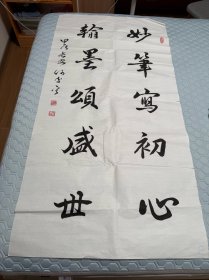 妙筆寫初心
翰墨頌盛世
甲辰